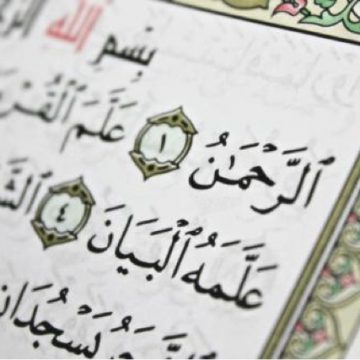 بِسْمِ ٱللَّهِ ٱلرَّ
ٱلرَّحْمَـٰنُ ١ عَلَّمَ ٱلْقُرْ
عَلَّمَهُ ٱلْبَيَانَ ٤ ٱلشَّ
يَسْجُدَانِ